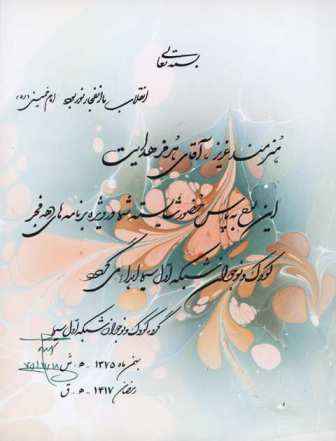 بسمه تعالی
انقلاب ما انفجار نور بود امام خمینی (ره)
هنرمند عزیز ، آقای هرمز هدایت
این لوح به پاس حضور شایسته شما در ویژه برنامه های دهه فجر
کودک و نوجوان شبکه اول سیما اهدا می گردد
گروه کودک و نوجوان شبکه اول سیما
بهمن ماه ۱۳۷۵ ه . ش
رمضان ۱۴۱۷ ه . ق